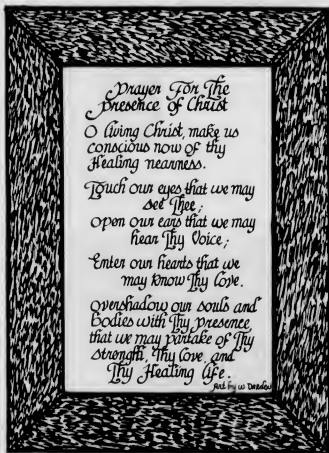 Prayer For The
Presence of Christ
O living Christ, make us
conscious now of thy
Healing nearness.
Touch our eyes that we may
see Thee;
open our ears that we may
hear Thy Voice;
Enter our hearts that we
may know Thy Love.
Overshadow our souls and
bodies with Thy presence
that we may partake of Thy
strength, Thy Love, and
Thy Healing Life.
Art by W Darden